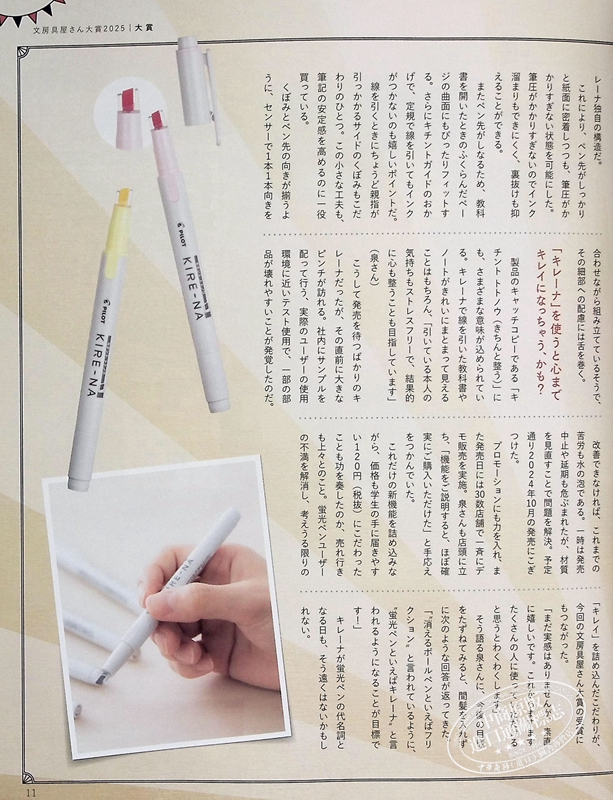 文房具屋さん大賞2025｜大賞
レーナ独自の構造だ。
これにより、ペン先がしっかり
と紙面に密着しつつも、筆圧がか
かりすぎない状態を可能にした。
筆圧がかかりすぎないのでインク
溜まりもできにくく、裏抜けも抑
えることができる。
またペン先がしなるため、教科
書を開いたときのふくらんだペー
ジの曲面にもぴったりフィットす
る。さらにキチントガイドのおか
げで、定規で線を引いてもインク
がつかないのも嬉しいポイントだ。
線を引くときにちょうど親指が
引っかかるサイドのくぼみもこだ
わりのひとつ。この小さな工夫も、
筆記の安定感を高めるのに一役
買っている。
くぼみとペン先の向きが揃うよ
うに、センサーで1本1本向きを
合わせながら組み立てているそうで、
その細部への配慮には舌を巻く。
「キレーナ」を使うと心まで
キレイになっちゃう、かも？
製品のキャッチコピーである「キ
チント トトノウ（きちんと整う）」に
も、さまざまな意味が込められてい
る。キレーナで線を引いた教科書や
ノートがきれいにまとまって見える
ことはもちろん、「引いている本人の
気持ちもストレスフリーで、結果的
に心も整うことも目指しています」
（泉さん）
こうして発売を待つばかりのキ
レーナだったが、その直前に大きな
ピンチが訪れる。社内にサンプルを
配って行う、実際のユーザーの使用
環境に近いテスト使用で、一部の部
品が壊れやすいことが発覚したのだ。
改善できなければ、これまでの
苦労も水の泡である。一時は発売
中止や延期も危ぶまれたが、材質
を見直すことで問題を解決。予定
通り2024年10月の発売にこぎ
つけた。
プロモーションにも力を入れ、ま
た発売日には30数店舗で一斉にデ
モ販売を実施。泉さんも店頭に立
ち、「機能をご説明すると、ほぼ確
実にご購入いただけた」と手応え
をつかんでいた。
これだけの新機能を詰め込みな
がら、価格も学生の手に届きやす
い120円（税抜）にこだわった
ことも功を奏したのか、売れ行き
も上々とのこと。蛍光ペンユーザー
の不満を解消し、考えうる限りの
「キレイ」を詰め込んだこだわりが、
今回の文房具屋さん大賞の受賞に
もつながった。
「まだ実感はありませんが、素直
に嬉しいです。これからますます
たくさんの人に使っていただける
と思うとわくわくします」
そう語る泉さんに、今後の目標
をたずねてみると、間髪を入れず
に次のような回答が返ってきた。
「“消えるボールペンといえばフリ
クション”と言われているように、
“蛍光ペンといえばキレーナ”と言
われるようになることが目標で
す！」
キレーナが蛍光ペンの代名詞と
なる日も、そう遠くはないかもし
れない。
PILOT
KIRE-NA
PILOT
KIRE-NA
KIRE-NA
11